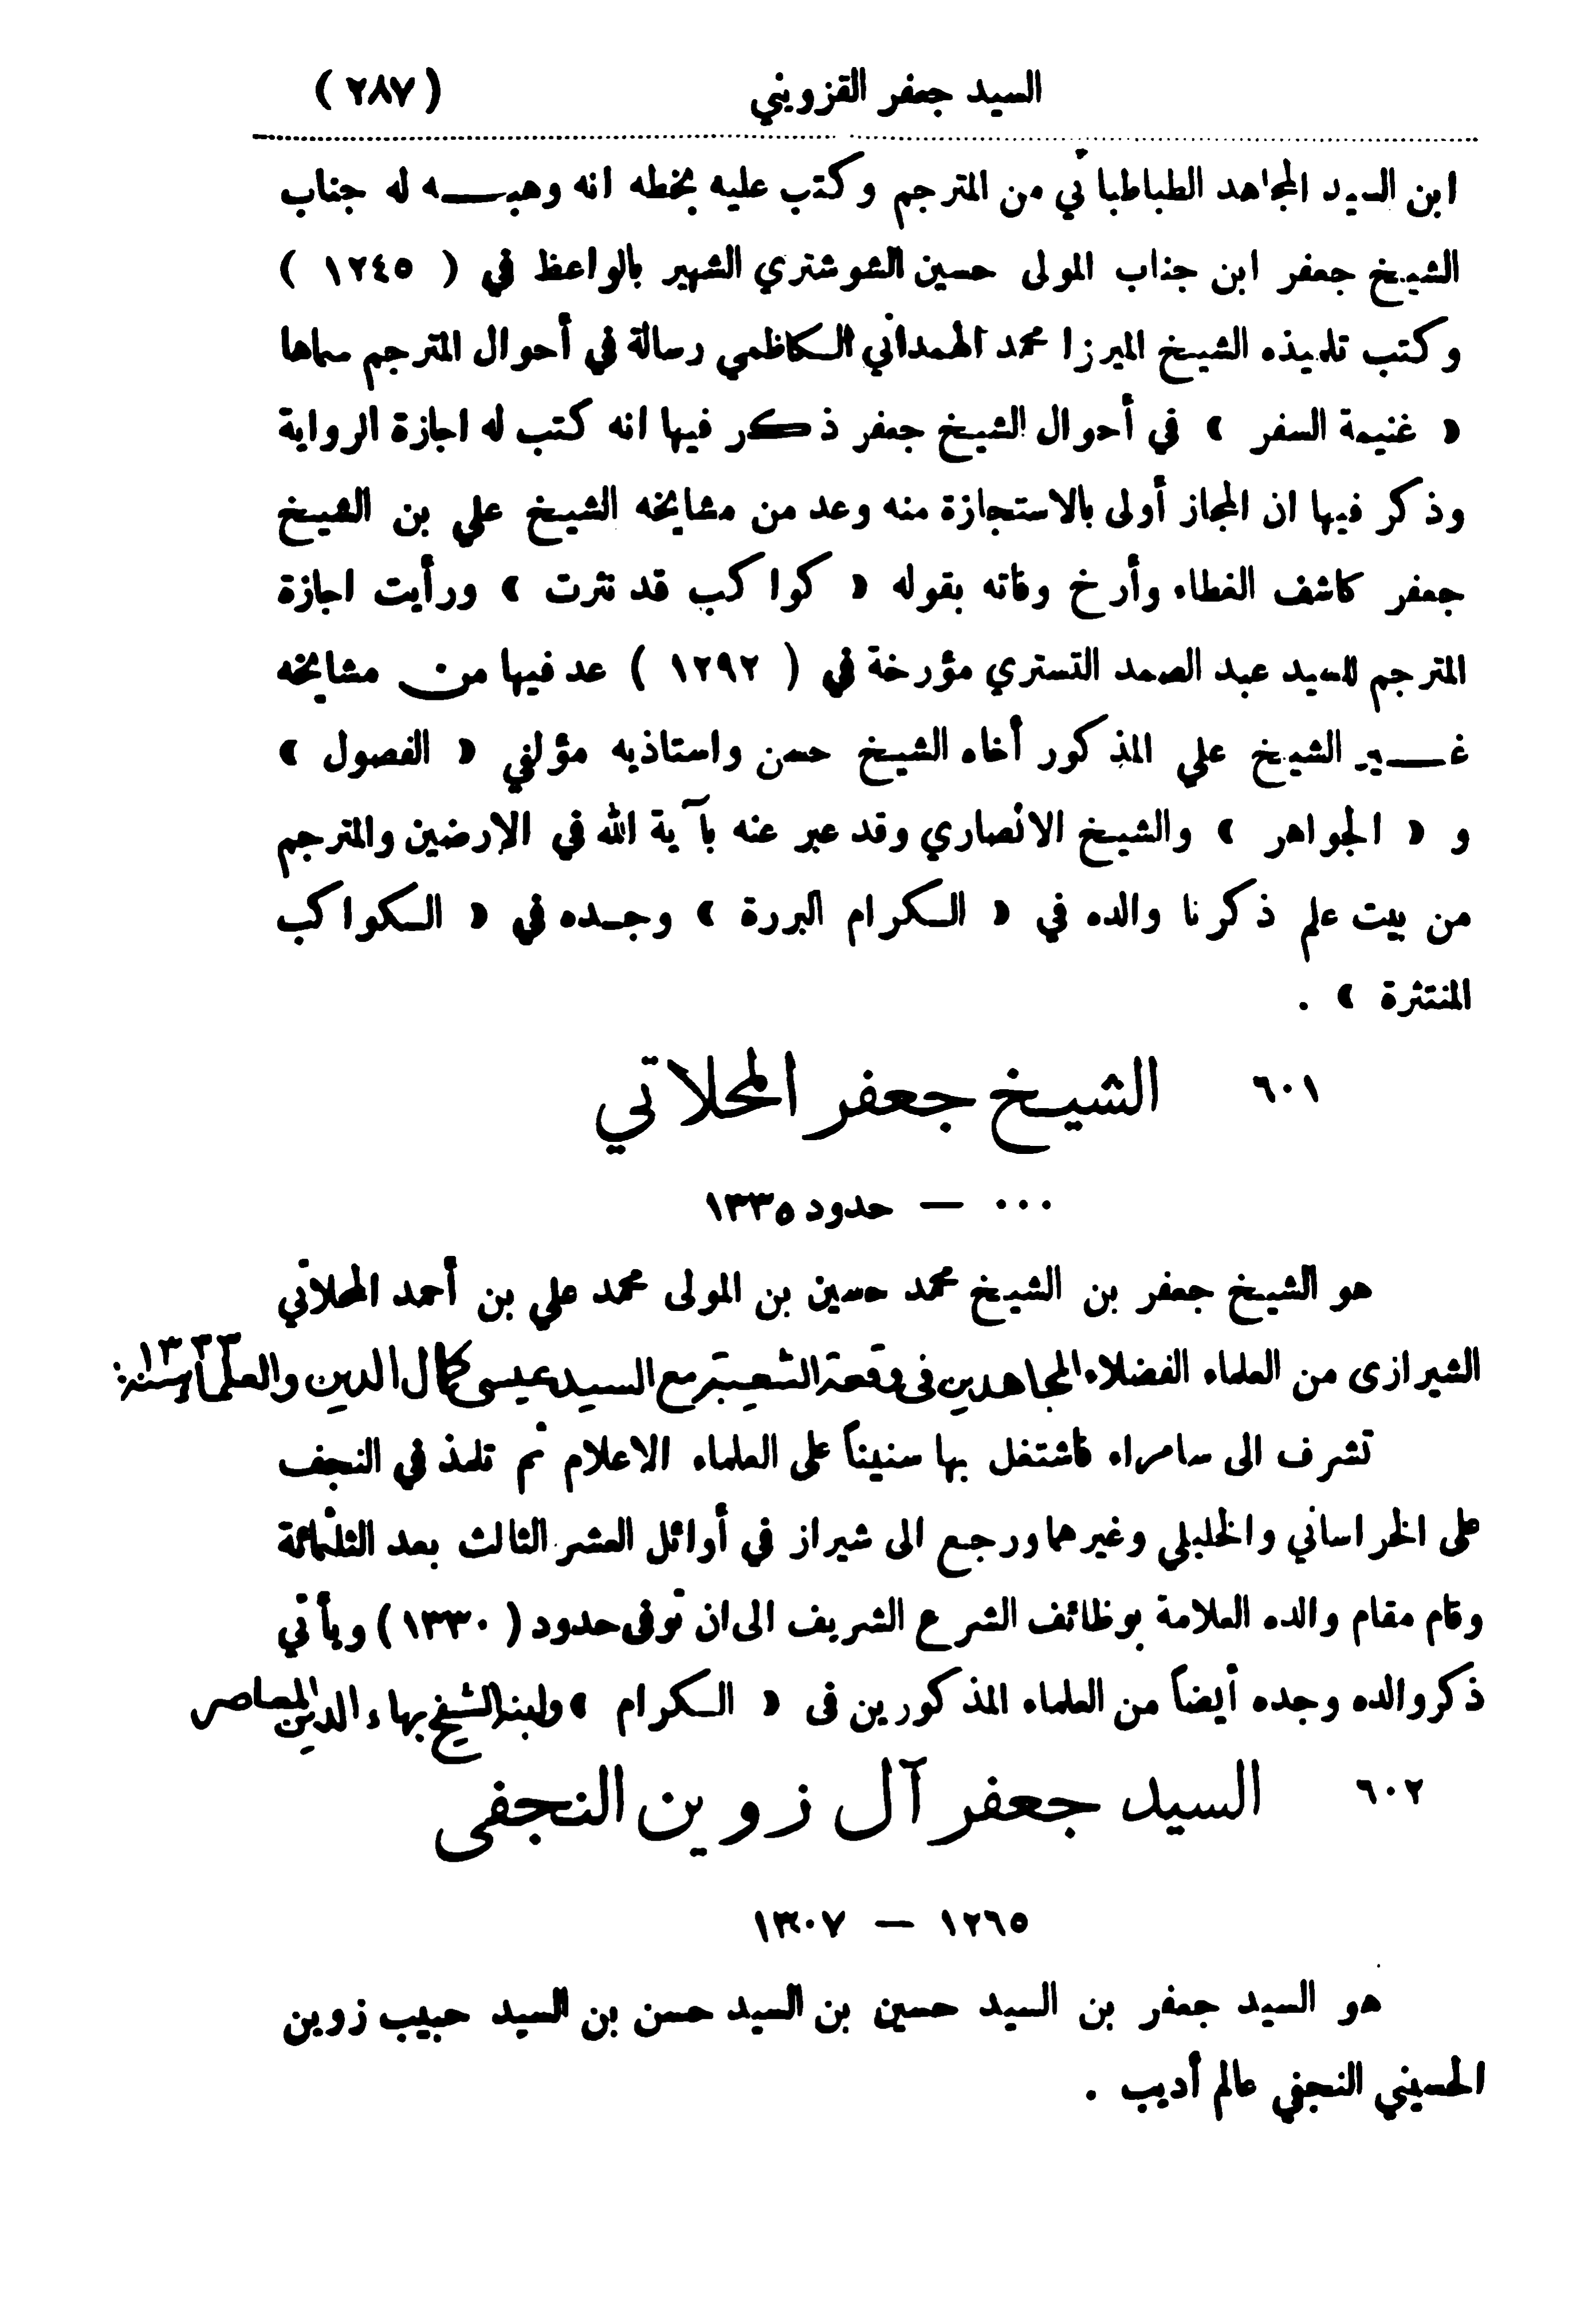 السيد جعفر القزويني (٢٨٧)
ابن السيد المجاهد الطباطبائي من المترجم وكتب عليه بخطه انه وهبه له جناب
الشيخ جعفر ابن جناب المولى حسين الشوشتري الشهير بالواعظ في ( ١٢٤٥ )
وكتب تلميذه الشيخ الميرزا محمد الهمداني الكاظمي رسالة في أحوال المترجم سماها
« غنيمة السفر » في أحوال الشيخ جعفر ذكر فيها انه كتب له اجازة الرواية
وذكر فيها ان المجاز أولى بالاستجازة منه وعد من مشايخه الشيخ علي بن الشيخ
جعفر كاشف الغطاء وأرخ وفاته بقوله « كواكب قد نثرت » ورأيت اجازة
المترجم للسيد عبد الصمد التستري مؤرخة في ( ١٢٩٢ ) عد فيها من مشايخه
غير الشيخ علي المذكور أخاه الشيخ حسن واستاذيه مؤلفي « الفصول »
و « الجواهر » والشيخ الانصاري وقد عبر عنه بآية الله في الارضين والمترجم
من بيت علم ذكرنا والده في « الكرام البررة » وجده في « الكواكب
المنتثرة » .
٦٠١ الشيخ جعفر المحلاتي
٠٠٠ — حدود ١٣٣٥
هو الشيخ جعفر بن الشيخ محمد حسين بن المولى محمد علي بن أحمد المحلاتي
الشيرازى من العلماء الفضلاء المجاهدين فى وقعة الشعيبة مع السيد عيسى كمال الدين والعلماء سنة: ١٣٣٣
تشرف الى سامراء فاشتغل بها سنيناً على العلماء الاعلام ثم تلمذ في النجف
على الخراساني والخليلي وغيرهما ورجع الى شيراز في أوائل العشر الثالث بعد الثلثمائة
وقام مقام والده العلامة بوظائف الشرع الشريف الى ان توفى حدود ( ١٣٣٠ ) ويأتي
ذكر والده وجده أيضاً من العلماء المذكورين فى « الكرام » ولابنه الشيخ بهاء الدين المعاصر
٦٠٢ السيد جعفر آل زوين النجفى
١٢٦٥ — ١٣٠٧
هو السيد جعفر بن السيد حسين بن السيد حسن بن السيد حبيب زوين
الحسيني النجفي عالم أديب .